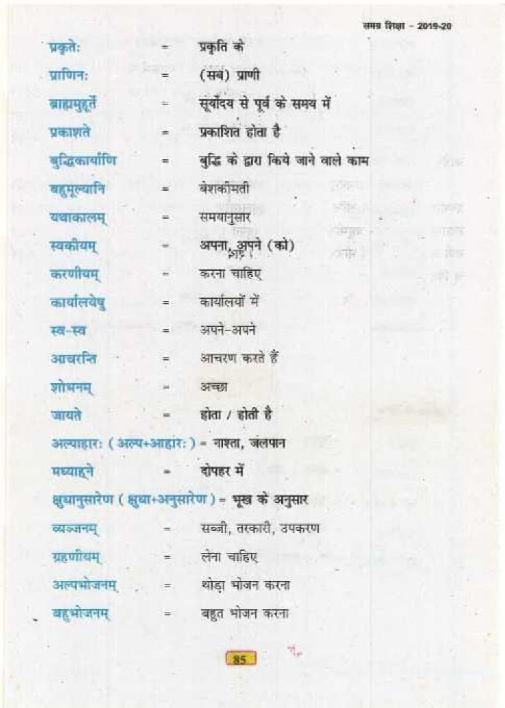 समग्र शिक्षा - 2019-20
प्रकृतेः = प्रकृति के
प्राणिनः = (सब) प्राणी
ब्राह्ममुहूर्ते = सूर्योदय से पूर्व के समय में
प्रकाशते = प्रकाशित होता है
बुद्धिकार्याणि = बुद्धि के द्वारा किये जाने वाले काम
बहुमूल्यानि = बेशकीमती
यथाकालम् = समयानुसार
स्वकीयम् = अपना, अपने (को)
करणीयम् = करना चाहिए
कार्यालयेषु = कार्यालयों में
स्व-स्व = अपने-अपने
आचरन्ति = आचरण करते हैं
शोभनम् = अच्छा
जायते = होता / होती है
अल्पाहारः (अल्प+आहारः) = नाश्ता, जलपान
मध्याह्ने = दोपहर में
क्षुधानुसारेण (क्षुधा+अनुसारेण) = भूख के अनुसार
व्यञ्जनम् = सब्जी, तरकारी, उपकरण
ग्रहणीयम् = लेना चाहिए
अल्पभोजनम् = थोड़ा भोजन करना
बहुभोजनम् = बहुत भोजन करना
85